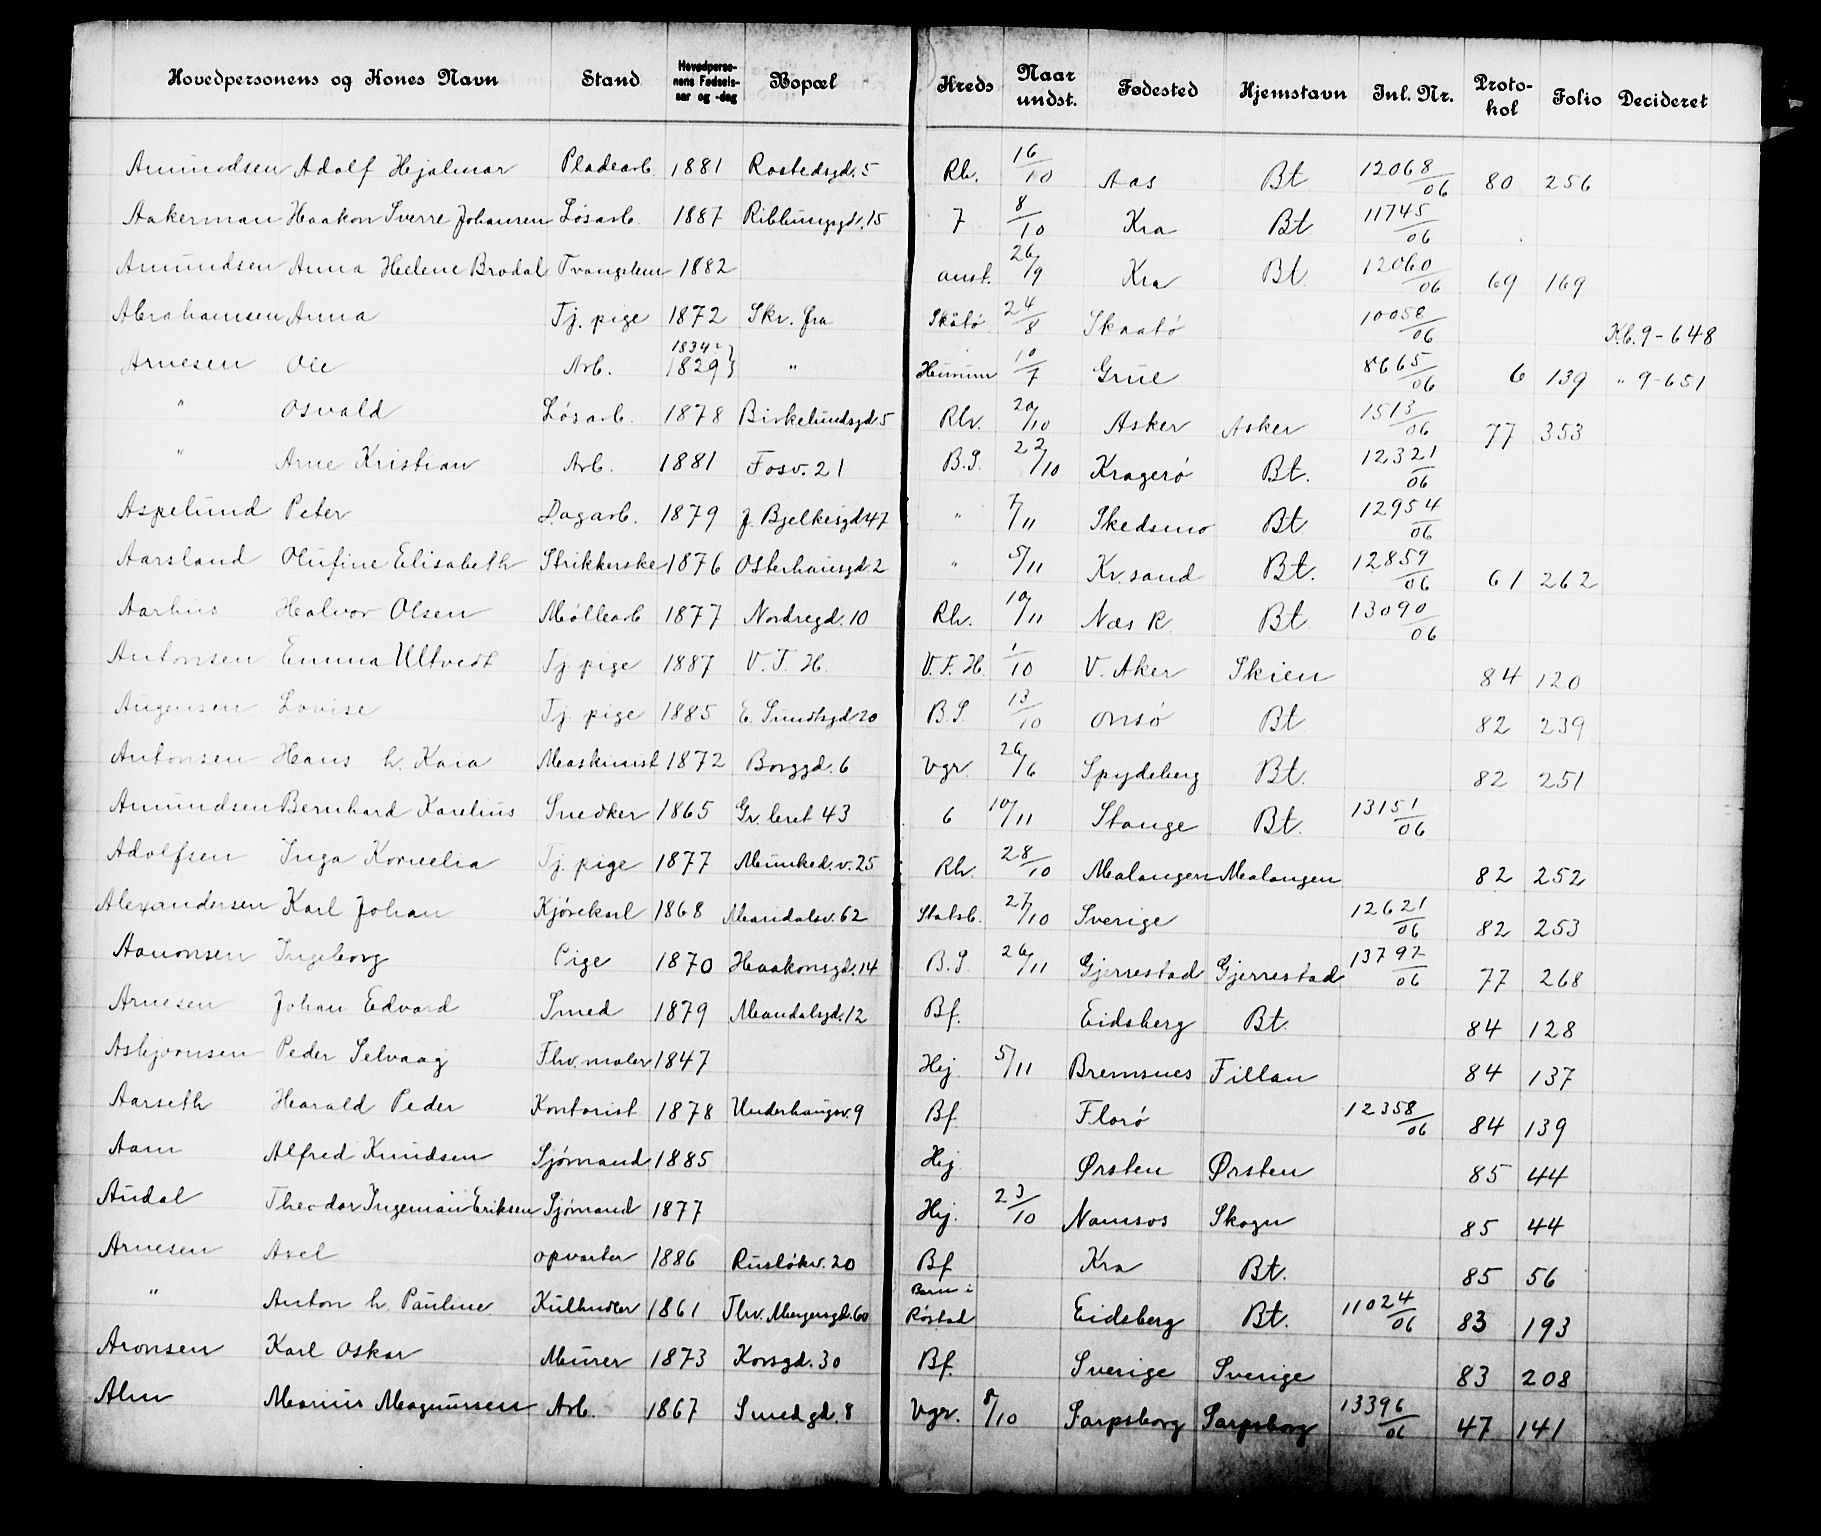 Hovedpersonens og Kones Navn Stand Hovedpersonens Fødselsaar og -dag Bopæl Kreds Naar undst. Fødested Hjemstavn Inl. Nr. Protokol Folio Decideret
Amundsen Adolf Hjalmar Pladearb 1881 Rostedsgd. 5 Rh. 16/10 Aas Bt 12068/06 80 256
Aakerman Haakon Sverre Johansen Løsarb. 1887 Ribbungsgd. 15 7 8/10 Kra Bt 11745/06
Amundsen Anna Helene Brodal Tvangslem 1882 anst. 26/9 Kra Bt. 12060/06 69 169
Abrahamsen Anna Tj. pige 1872 Skr. fra Skåtø 24/8 Skaatø 10058/06 Kb. 9-648
Arnesen Ole Arb. 1834 1829 " 10/7 Grue 8665/06 6 139 " 9-651
" Osvald Løsarb. 1878 Birkelundsgd 5 Rh. 20/10 Asker Asker 1513/06 77 353
" Arne Kristian Arb. 1881 Fosv. 21 B.S. 22/10 Kragerø Bt. 12321/06
Aspelund Peter Dagarb. 1879 J. Bjelkesgd 47 " 7/11 Skedsmo Bt. 12954/06
Aarsland Olufine Elisabeth Strikkerske 1876 Osterhausgd. 2 " 5/11 Kr.sand Bt. 12859/06 61 262
Aarhus Halvor Olsen Møllearb 1877 Nordregd. 10 Rh. 10/11 Næs R. Bt. 13090/06
Antonsen Emma Ultvedt Tj. pige 1887 V. F. H. V. F. H. 1/10 V. Aker Skien 84 120
Augensen Lovise Tj. pige 1885 E. Sundtsgd 20 B.S. 13/10 Onsø Bt 82 239
Antonsen Hans h. Kaia Maskinist 1872 Borggd. 6 Vgr. 26/6 Spydeberg Bt. 82 251
Amundsen Bernhard Karelius Snedker 1865 Gr. leret 43 6 10/11 Stange Bt. 13151/06
Adolfsen Inga Kornelia Tj. pige 1877 Munked. v. 25 Rh. 28/10 Malangen Malangen 82 252
Alexandersen Karl Johan Kjørekarl 1868 Mandalsv. 62 Statsb. 27/10 Sverige 12621/06 82 253
Aanonsen Ingeborg Pige 1870 Haakonsgd. 14 B.S. 26/11 Gjerrestad Gjerrestad 13797/06 77 268
Arnesen Johan Edvard Smed 1879 Mandalsgd. 12 Bf. Eidsberg Bt. 84 128
Asbjørnsen Peder Selvaag Fhv. maler 1847 Hej 5/11 Bremsnes Fillan 84 137
Aarseth Harald Peder Kontorist 1878 Underhaugsv. 9 Bf. Florø 12358/06 84 139
Aam Alfred Knudsen Sjømand 1885 Hej Ørsten Ørsten 85 44
Audal Theodor Ingeman Eriksen Sjømand 1877 Hej. 23/10 Namsos Skogn 85 44
Arnesen Axel opvarter 1886 Rusløkv. 20 Bf Kra Bt. 85 56
" Anton h. Pauline Kulhndler 1861 Thv. Meyersgd. 60 Barn i Røstad Eidsberg Bt. 11024/06 83 193
Aronsen Karl Oskar Murer 1873 Korsgd. 30 Bf. Sverige Sverige 83 208
Alm Marius Magnussen Arb. 1867 Smedgd. 8 Vgr. 8/10 Sarpsborg Sarpsborg 13396/06 47 141